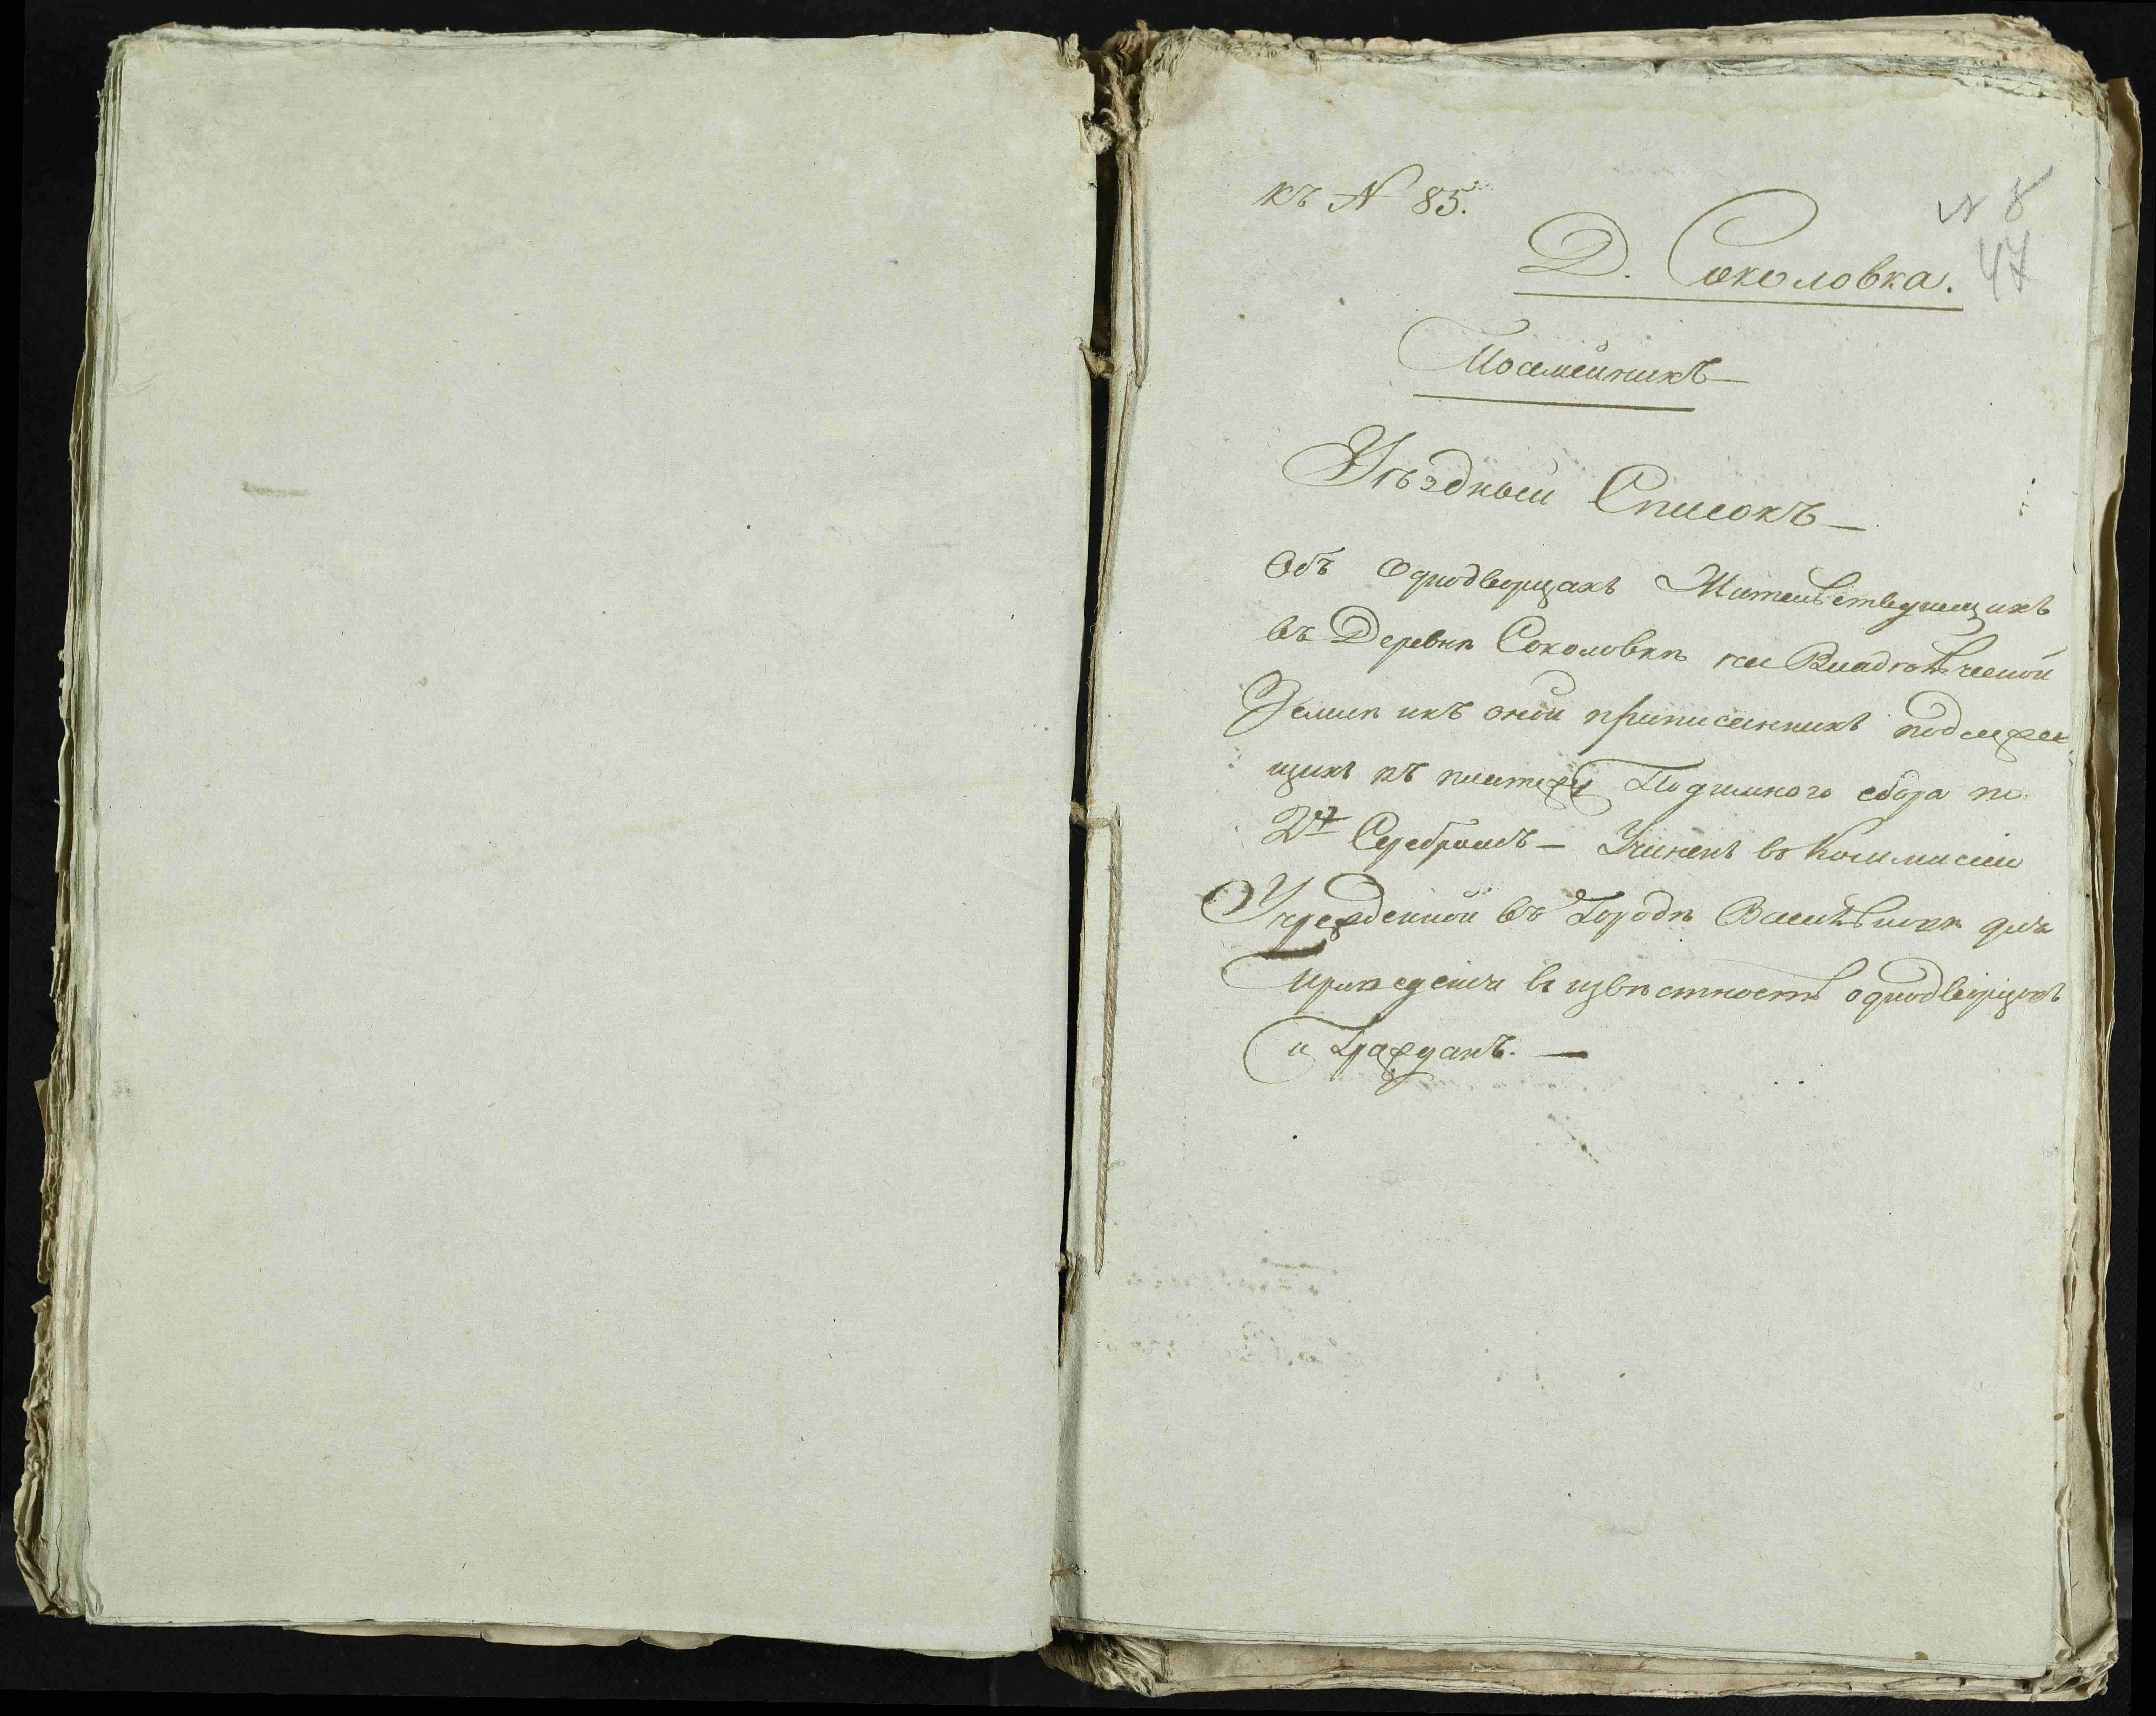 къ N 85.
N 8
47
Д. Соколовка.
Посемейникъ
Уѣздный Списокъ
Объ Однодворцахъ Жительствующихъ
въ Деревнѣ Соколовкѣ на Владѣльческой
Землѣ икъ оной приписанныхъ подлежа
щихъ къ платежу Подымного сбора по
2 Серебромъ — Учиненъ въ Коммисіи
Учрежденной въ Городѣ для
Приведенія въ извѣстность однодворцовъ
и Гражданъ. —